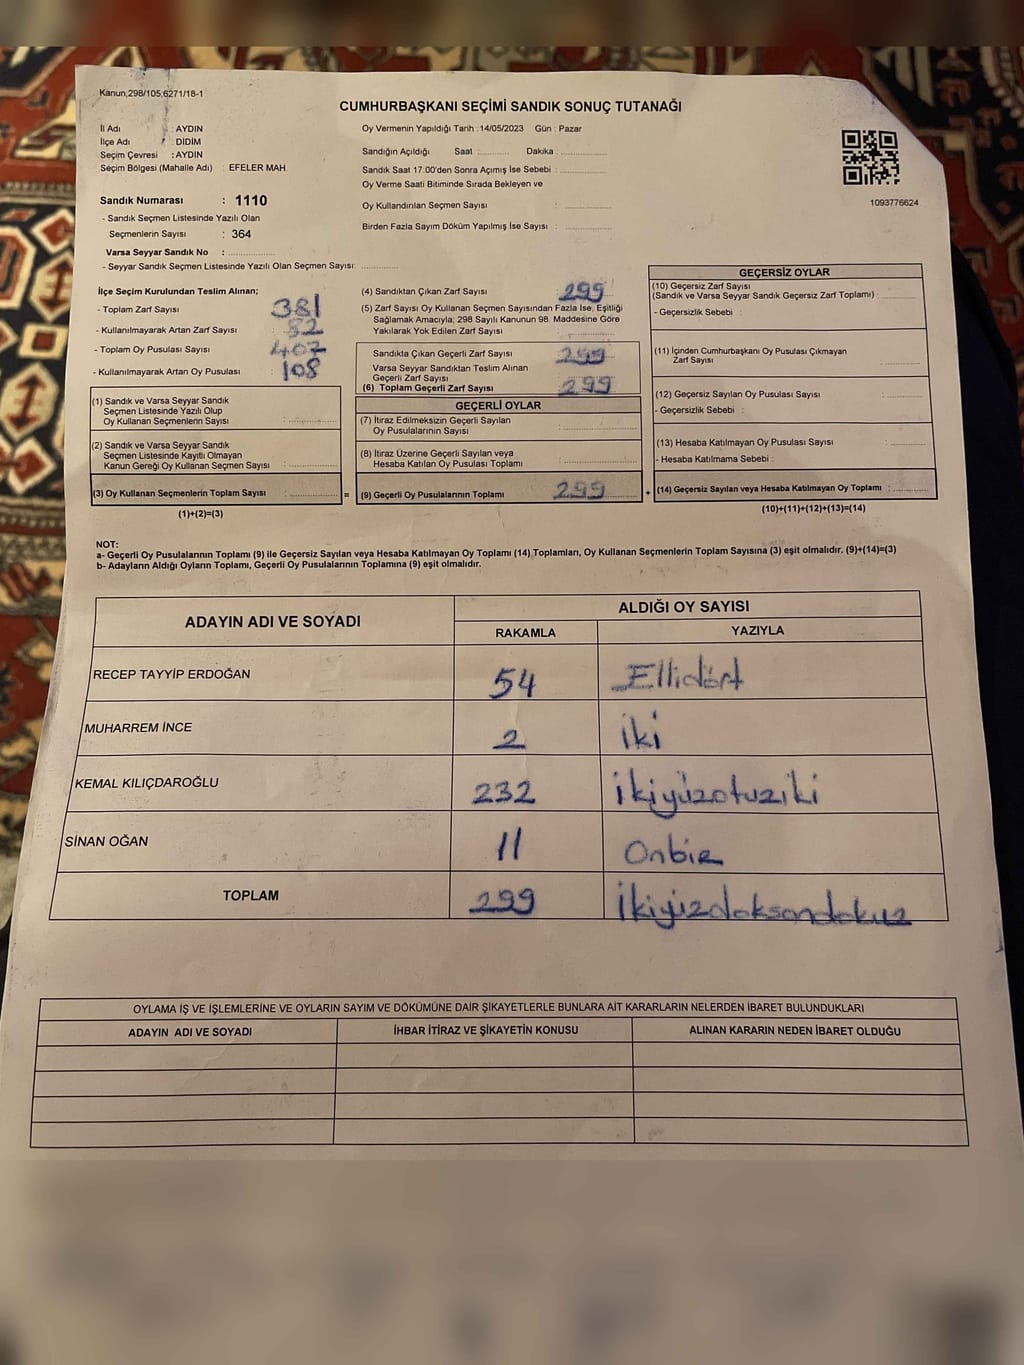 Kanun,298/105,6271/18-1
CUMHURBAŞKANI SEÇİMİ SANDIK SONUÇ TUTANAĞI
İl Adı : AYDIN
İlçe Adı : DİDİM
Seçim Çevresi : AYDIN
Seçim Bölgesi (Mahalle Adı) : EFELER MAH.
Sandık Numarası : 1110
- Sandık Seçmen Listesinde Yazılı Olan
Seçmenlerin Sayısı : 364
Varsa Seyyar Sandık No :
- Seyyar Sandık Seçmen Listesinde Yazılı Olan Seçmen Sayısı:
Oy Vermenin Yapıldığı Tarih :14/05/2023 Gün : Pazar
Sandığın Açıldığı Saat : Dakika :
Sandık Saat 17.00'den Sonra Açımış İse Sebebi :
Oy Verme Saati Bitiminde Sırada Bekleyen ve
Oy Kullandırılan Seçmen Sayısı :
Birden Fazla Sayım Döküm Yapılmış İse Sayısı :
1093776624
İlçe Seçim Kurulundan Teslim Alınan;
- Toplam Zarf Sayısı 381
- Kullanılmayarak Artan Zarf Sayısı : 82
- Toplam Oy Pusulası Sayısı 407
- Kullanılmayarak Artan Oy Pusulası : 108
(1) Sandık ve Varsa Seyyar Sandık
Seçmen Listesinde Yazılı Olup
Oy Kullanan Seçmenlerin Sayısı :
(2) Sandık ve Varsa Seyyar Sandık
Seçmen Listesinde Kayıtlı Olmayan
Kanun Gereği Oy Kullanan Seçmen Sayısı :
(3) Oy Kullanan Seçmenlerin Toplam Sayısı :
(1)+(2)=(3)
=
(4) Sandıktan Çıkan Zarf Sayısı : 299
(5) Zarf Sayısı Oy Kullanan Seçmen Sayısından Fazla İse, Eşitliği
Sağlamak Amacıyla; 298 Sayılı Kanunun 98. Maddesine Göre
Yakılarak Yok Edilen Zarf Sayısı :
Sandıkta Çıkan Geçerli Zarf Sayısı : 299
Varsa Seyyar Sandıktan Teslim Alınan
Geçerli Zarf Sayısı
(6) Toplam Geçerli Zarf Sayısı : 299
GEÇERLİ OYLAR
(7) İtiraz Edilmeksizin Geçerli Sayılan
Oy Pusulalarının Sayısı :
(8) İtiraz Üzerine Geçerli Sayılan veya
Hesaba Katılan Oy Pusulası Toplamı :
(9) Geçerli Oy Pusulalarının Toplamı : 299
+
GEÇERSİZ OYLAR
(10) Geçersiz Zarf Sayısı
(Sandık ve Varsa Seyyar Sandık Geçersiz Zarf Toplamı) :
- Geçersizlik Sebebi :
(11) İçinden Cumhurbaşkanı Oy Pusulası Çıkmayan
Zarf Sayısı :
(12) Geçersiz Sayılan Oy Pusulası Sayısı :
- Geçersizlik Sebebi :
(13) Hesaba Katılmayan Oy Pusulası Sayısı :
- Hesaba Katılmama Sebebi :
(14) Geçersiz Sayılan veya Hesaba Katılmayan Oy Toplamı :
(10)+(11)+(12)+(13)=(14)
NOT:
a- Geçerli Oy Pusulalarının Toplamı (9) ile Geçersiz Sayılan veya Hesaba Katılmayan Oy Toplamı (14) Toplamları, Oy Kullanan Seçmenlerin Toplam Sayısına (3) eşit olmalıdır. (9)+(14)=(3)
b- Adayların Aldığı Oyların Toplamı, Geçerli Oy Pusulalarının Toplamına (9) eşit olmalıdır.
ADAYIN ADI VE SOYADI ALDIĞI OY SAYISI
RAKAMLA YAZIYLA
RECEP TAYYİP ERDOĞAN 54 Ellidört
MUHARREM İNCE 2 iki
KEMAL KILIÇDAROĞLU 232 ikiyüzotuziki
SİNAN OĞAN 11 Onbir
TOPLAM 299 ikiyüzdoksandokuz
OYLAMA İŞ VE İŞLEMLERİNE VE OYLARIN SAYIM VE DÖKÜMÜNE DAİR ŞİKAYETLERLE BUNLARA AİT KARARLARIN NELERDEN İBARET BULUNDUKLARI
ADAYIN ADI VE SOYADI İHBAR İTİRAZ VE ŞİKAYETİN KONUSU ALINAN KARARIN NEDEN İBARET OLDUĞU